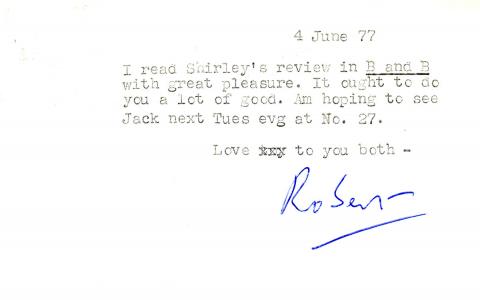 4 June 77
I read Shirley's review in B and B
with great pleasure. It ought to do
you a lot of good. Am hoping to see
Jack next Tues evg at No. 27.
Love xxx to you both -
Robert